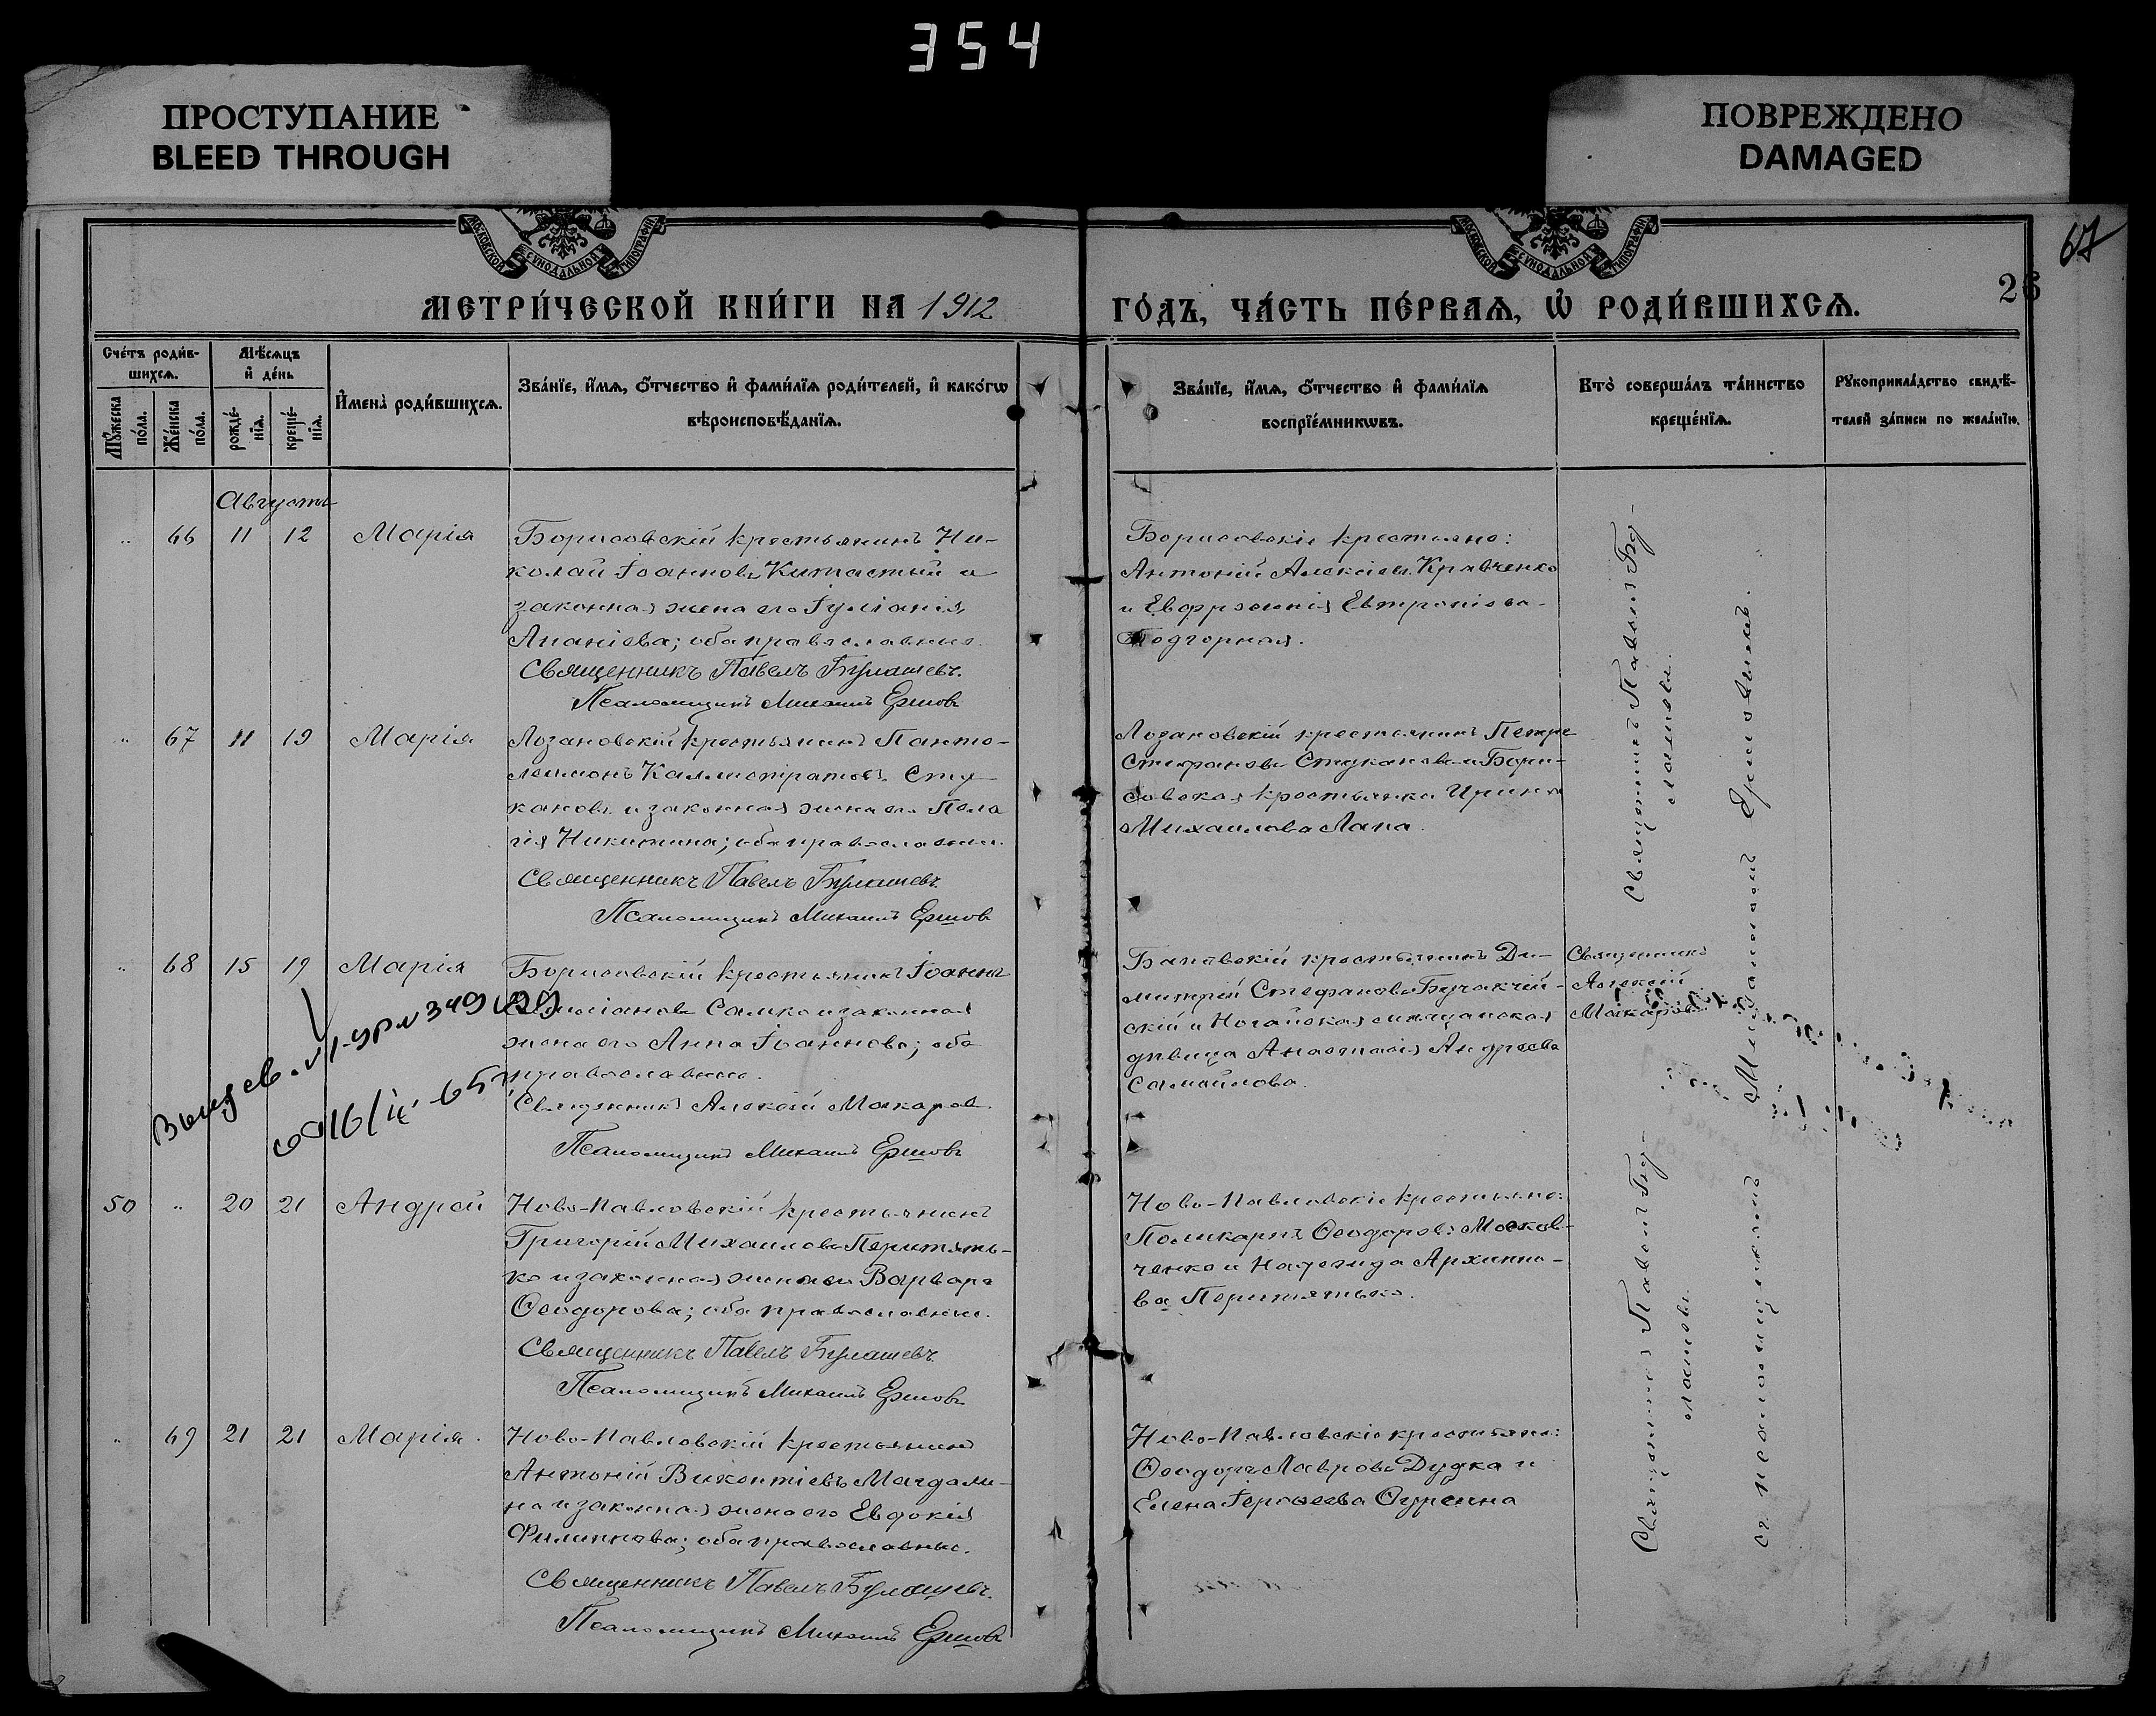 354
ПРОСТУПАНИЕ
BLEED THROUGH
ПОВРЕЖДЕНО
DAMAGED
МОСКОВСКОЙ СУНОДАЛЬНОЙ ТИПОГРАФІИ
МОСКОВСКОЙ СУНОДАЛЬНОЙ ТИПОГРАФІИ
67
26
МЕТРИ́ЧЕСКОЙ КНИ́ГИ НА 1912
ГО́ДЪ, ЧА́СТЬ ПЕ́РВАѦ, Ѡ҆ РОДИ́ВШИХСѦ.
Сче́тъ роди́в-
шихсѧ.
Мꙋ́жеска
по́ла.
Же́нска
по́ла.
Мѣ́сѧцъ
и҆ де́нь
рожде́-
нїѧ.
креще́-
нїѧ.
И҆мена̀ роди́вшихсѧ.
Зва́нїе, и҆́мѧ, ѻ҆́тчество и҆ фами́лїѧ роди́телей, и҆ како́гѡ
вѣроисповѣ́данїѧ.
Зва́нїе, и҆́мѧ, ѻ҆́тчество и҆ фами́лїѧ
воспрїе́мникѡвъ.
Кто̀ соверша́лъ та́инство
креще́нїѧ.
Рꙋкоприкла́дство свидѣ́-
телей за́писи по жела́нїю.
Августъ
„ 66 11 12 Марія
Борисовскій крестьянинъ Ни-
колай Іоанновъ Китастый и
законная жена его Іуліанія
Ананіева; оба православные.
Священникъ Павелъ Булашевъ.
Псаломщикъ Михаилъ Ершовъ
Борисовскіе крестьяне:
Антоній Алексіевъ Кравченко
и Евфросинія Евтропіева
Подгорная.
„ 67 11 19 Марія
Лозановскій крестьянинъ Панте-
леимонъ Каллистратовъ Сту-
кановъ и законная жена его Пела
гія Никитина; оба православные.
Священникъ Павелъ Булашевъ.
Псаломщикъ Михаилъ Ершовъ
Лозановскій крестьянинъ Петръ
Стефановъ Стукановъ и Бори-
совская крестьянка Ирина
Михаилова Лапа.
„ 68 15 19 Марія
Борисовскій крестьянинъ Іоаннъ
Самко и законная
жена его Анна Іоаннова; оба
православные.
Священникъ Алексій Макаровъ.
Псаломщикъ Михаилъ Ершовъ
крестьянинъ Ди-
митрій Стефановъ
скій и Ногайская мѣщанская
дѣвица Анастасія Андреева
Самойлова.
Священникъ
Алексій
Макаровъ
50 „ 20 21 Андрей
Ново-Павловскій крестьянинъ
Григорій Михаиловъ Перитять-
ко и законная жена его Варвара
Ѳеодорова; оба православные.
Священникъ Павелъ Булашевъ.
Псаломщикъ Михаилъ Ершовъ
Ново-Павловскіе крестьяне:
Поликарпъ Ѳеодоровъ Москов-
ченко и Надежда Архиппо-
ва Перитятько.
„ 69 21 21 Марія.
Ново-Павловскій крестьянинъ
Антоній Викентіевъ Магдали-
на и законная жена его Евдокія
Филиппова; оба православные.
Священникъ Павелъ Булашевъ.
Псаломщикъ Михаилъ Ершовъ
Ново-Павловскіе крестьяне:
Ѳеодоръ Лавровъ Дудка и
Елена
Священникъ Павелъ Бу-
лашевъ.
Священникъ Павелъ Бу-
лашевъ
съ псаломщикомъ Михаиломъ Ершовымъ.